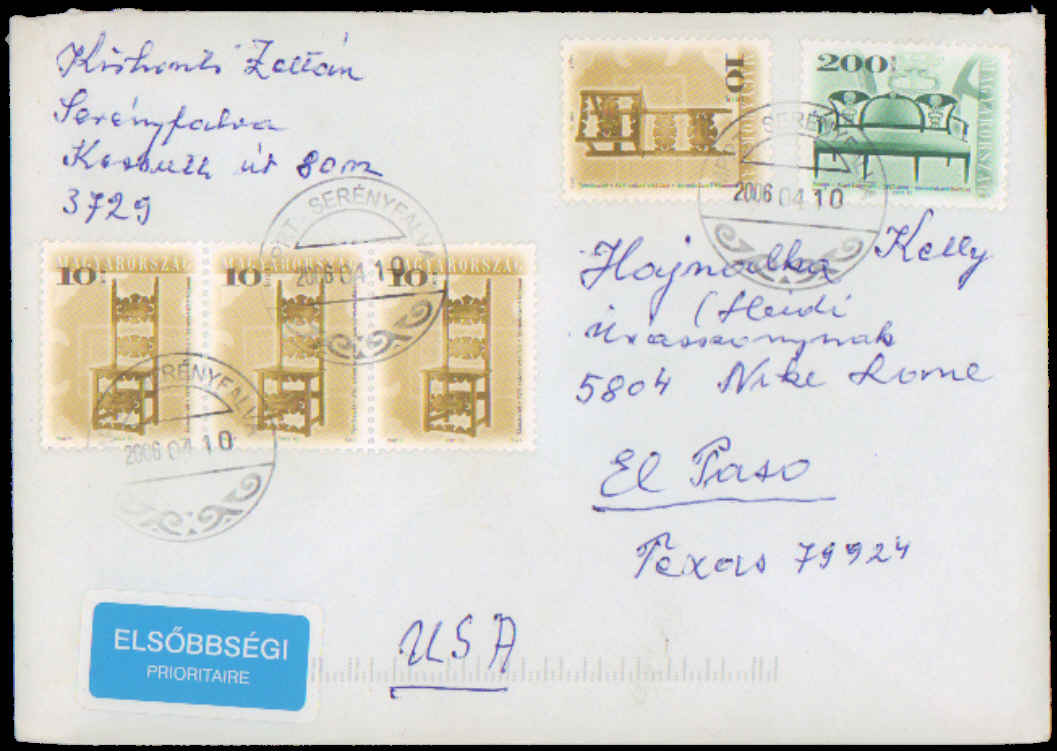 Kishonti Zoltán
Serényfalva
Kossuth út 80
3729
10 Ft MAGYARORSZÁG
200 Ft MAGYARORSZÁG
SERÉNYFALVA
2006 04 10
MAGYARORSZÁG MAGYARORSZÁG MAGYARORSZÁG
10 Ft 10 Ft 10 Ft
SERÉNYFALVA
2006 04 10
SERÉNYFALVA
2006 04 10
Hajnalka Kelly
(Heidi
Úrasszonynak
5804 Nike Rome
El Paso
Texas 79924
USA
ELSŐBBSÉGI
PRIORITAIRE